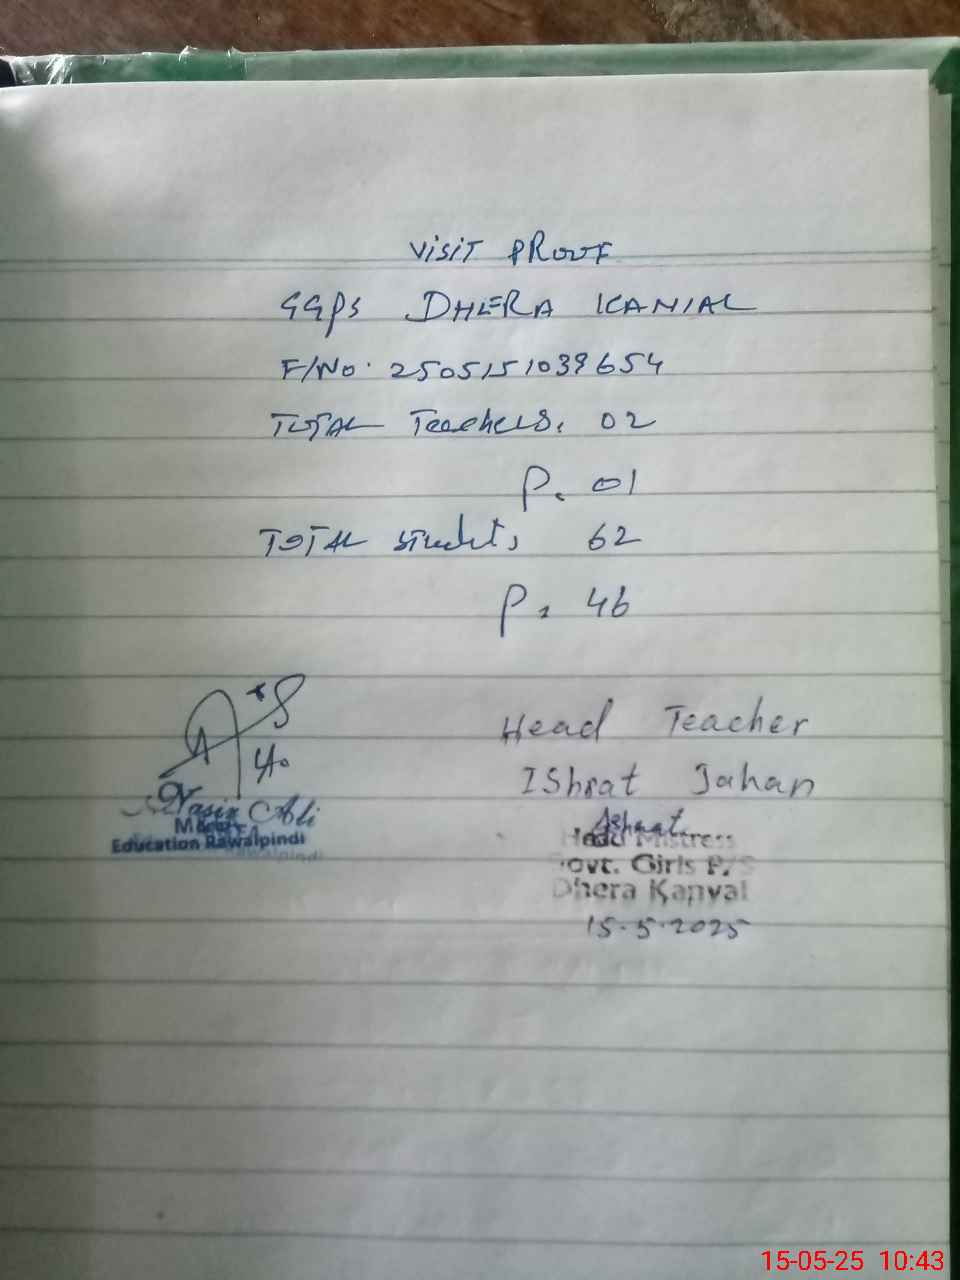 VISIT PROOF
GGPS DHERA KANIAL
F/No. 2505151039654
TOTAL Teachers. 02
P. 01
TOTAL students 62
P. 46
Head Teacher
IShrat Jahan
Nasir Ali
Education Rawalpindi
Head Mistress
Govt. Girls P/S
Dhera Kanyal
15-5-2025
15-05-25 10:43